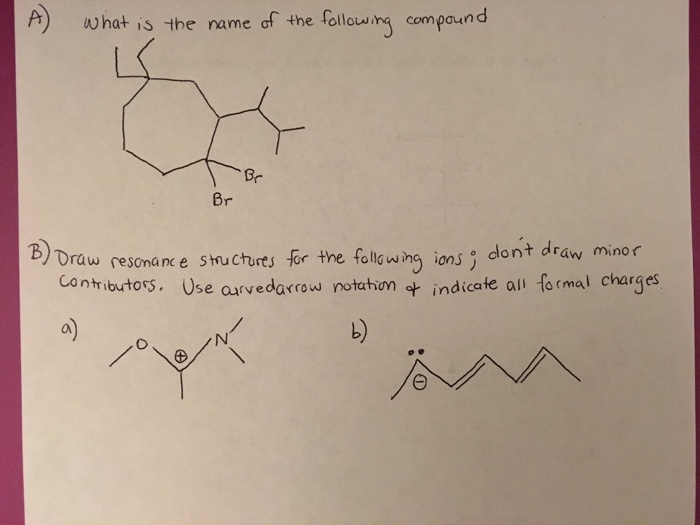 A) What is the name of the following compound
Br
Br
B) Draw resonance structures for the following ions; don't draw minor
contributors. Use curvedarrow notation & indicate all formal charges.
a) O ⊕ N
b) •• ⊖